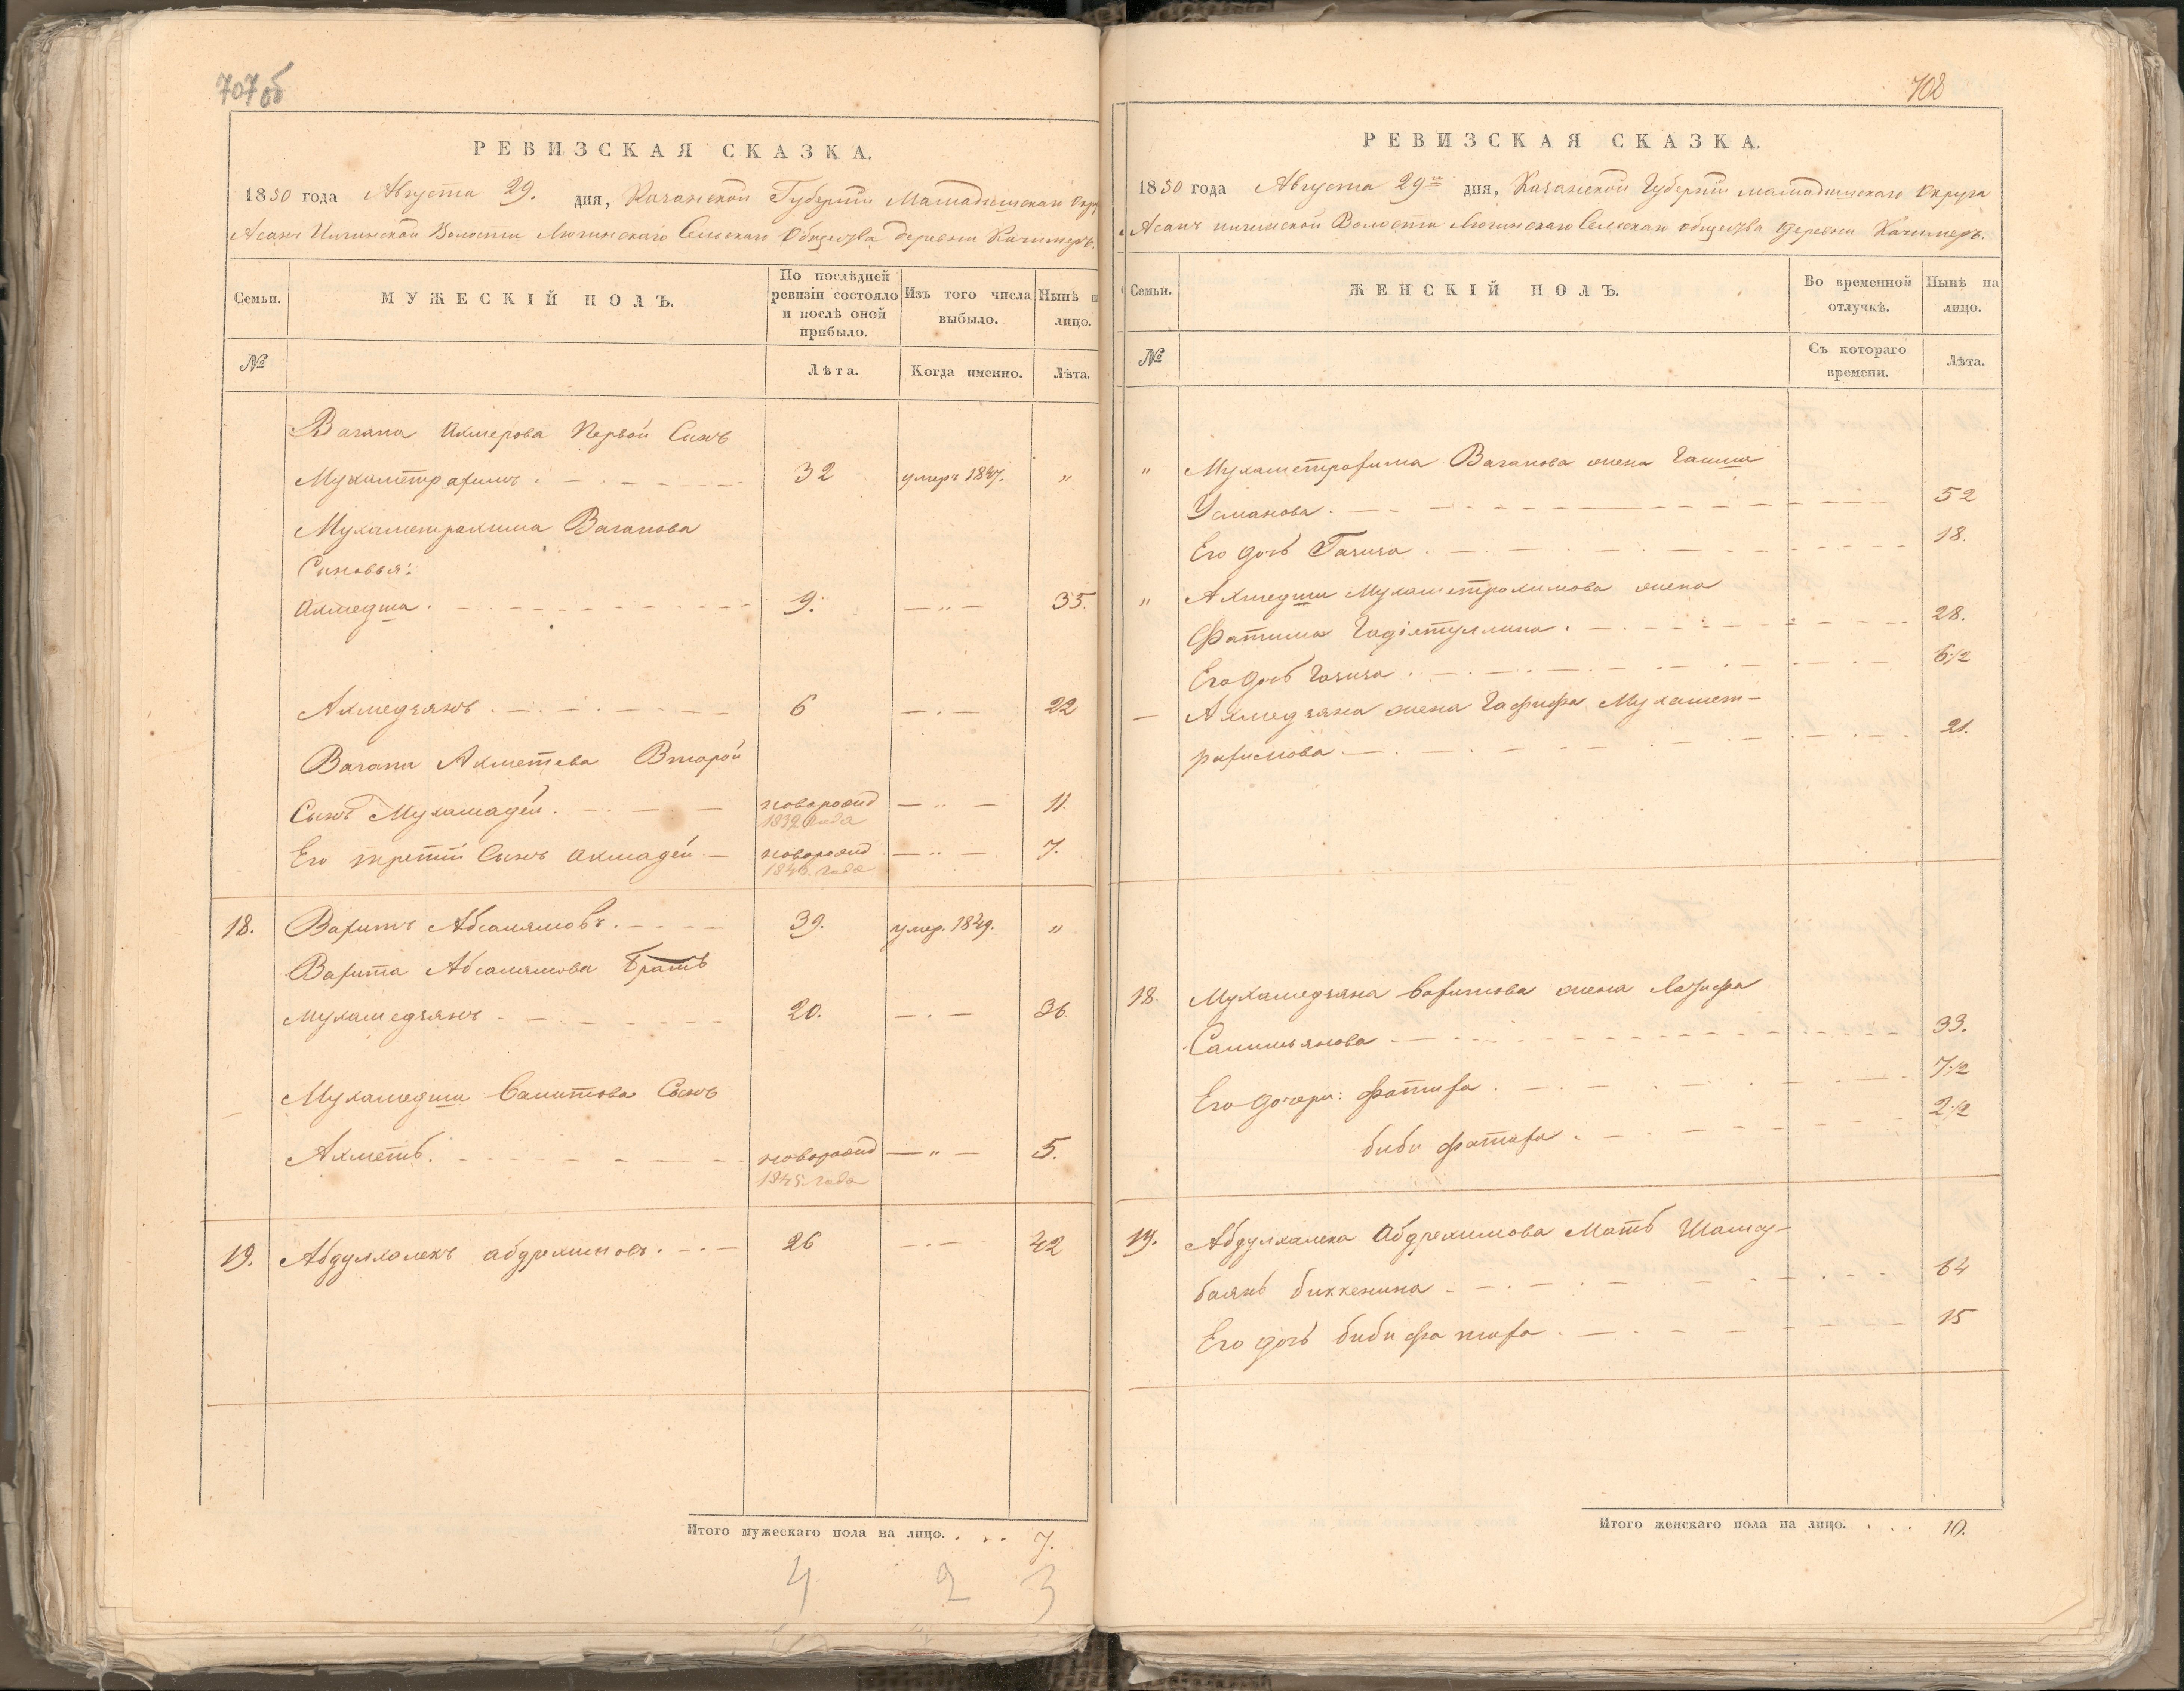 707об
РЕВИЗСКАЯ СКАЗКА.
1850 года Августа 29. дня, Казанской Губерніи Мамадышскаго Окру
Асанъ Илгинской Волости Сельскаго Общества деревни Качимеръ.
Семьи.
МУЖЕСКІЙ ПОЛЪ.
По послѣдней ревизіи состояло и послѣ оной прибыло.
Изъ того числа выбыло.
Нынѣ н лицо.
№
Лѣта.
Когда именно.
Лѣта.
Вагапа Ахмерова Первой Сынъ
Мухаметрахимъ. 32 умеръ 1847. "
Мухаметрахима Вагапова
Сыновья:
Ахмедша. 9. — " — 35.
Ахмедзянъ. 6 — . — 22
Вагапа Ахметева Второй
Сынъ Мухамадей. новорожд — " — 11.
1839 года
Его третій Сынъ Ахмадей — новорожд — " — 7.
1843. года
18. Вахитъ Абсалямовъ. 39. умер. 1849. "
Вахита Абсалямова Братъ
Мухамедзянъ. 20. — . — 36.
Мухамедши Сынъ
Ахметь. новорожд — " — 5.
1845. года
19. Абдулхалекъ абдрахимовъ. 26 — . — 42
Итого мужескаго пола на лицо. . . . 7.
4 2 3
708
РЕВИЗСКАЯ СКАЗКА.
1850 года Августа 29го дня, Казанской Губерніи мамадышскаго Округа
Асанъ илгинской Волости Сельскаго общества деревни Качимеръ.
Семьи.
ЖЕНСКІЙ ПОЛЪ.
Во временной отлучкѣ.
Нынѣ на лицо.
№
Съ котораго времени.
Лѣта.
" Мухаметрахима Вагапова жена
Усманова. 52
Его дочь Газиза. 18.
" Ахмедши Мухаметрахимова жена
Фатима 28.
Его дочь Газиза. 6 1/2
— Ахмедзяна жена Гафифа Мухамет-
рахимова. 21.
18. Мухамедзяна Вахитова жена Латифа
33.
Его дочери: фатиха. 7 1/2
биби фатиха. 2 1/2
19. Абдулхалека Абдрахимова Мать Шамсу-
баянь биккенина. 64
Его дочь биби фатиха. 15
Итого женскаго пола на лицо. . . . 10.